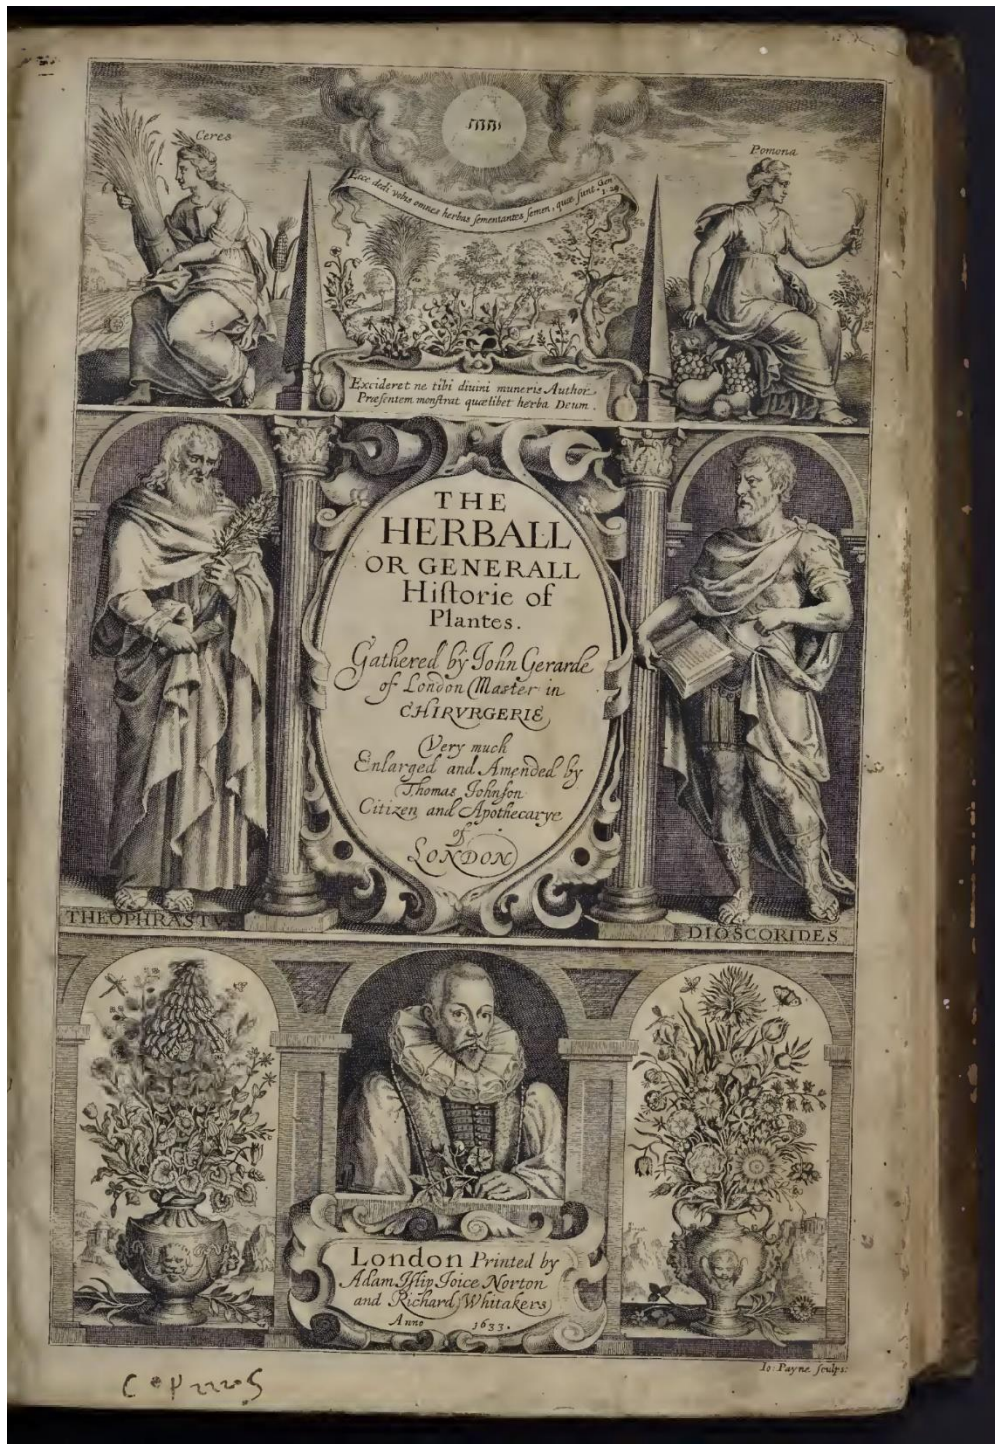 Ceres
Pomona
Ecce dedi vobis omnes herbas ſementantes ſemen, quæ ſunt. Gen
1. 29.
Excideret ne tibi diuini muneris Author
Præſentem monſtrat quælibet herba Deum.
THE
HERBALL
OR GENERALL
Hiſtorie of
Plantes.
Gathered by John Gerarde
of London Master in
CHIRVRGERIE
Very much
Enlarged and Amended by
Thomas Johnſon
Citizen and Apothecarye
of
LONDON
THEOPHRASTVS
DIOSCORIDES
London Printed by
Adam Iſlip Joice Norton
and Richard Whitakers
Anno 1633.
Io: Payne ſculpſ: